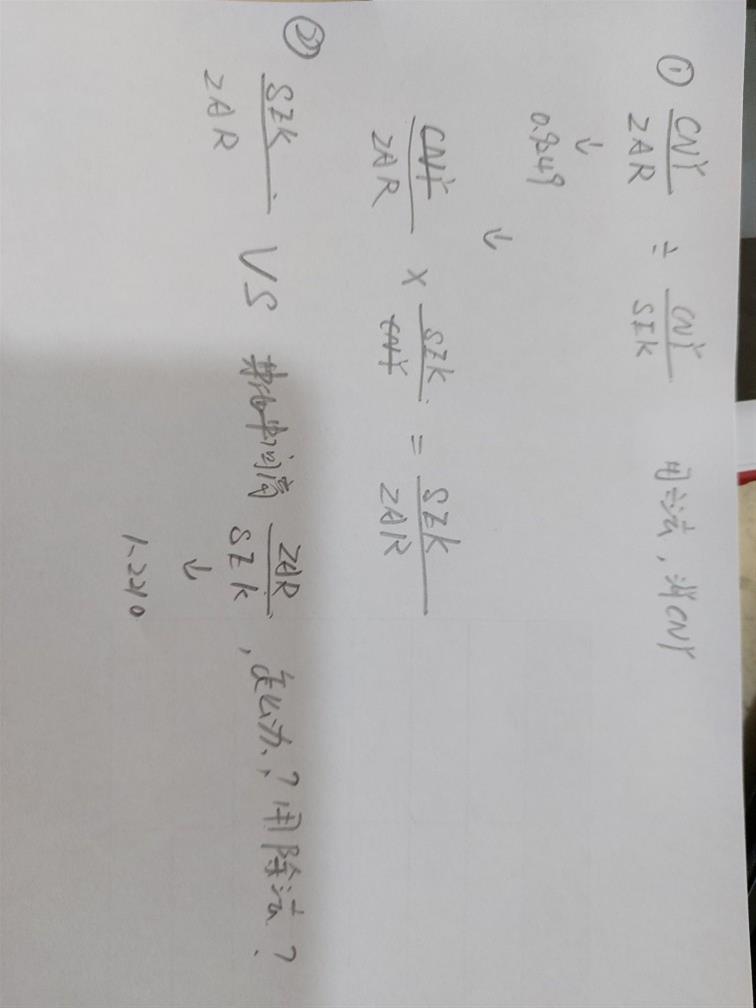 ① CNY/ZAR ÷ CNY/SEK 用÷法，消CNY
↓
↓
CNY/ZAR × SEK/CNY = SEK/ZAR
② SEK/ZAR VS ZAR/SEK，怎么办？用除法？
↓
1.2210